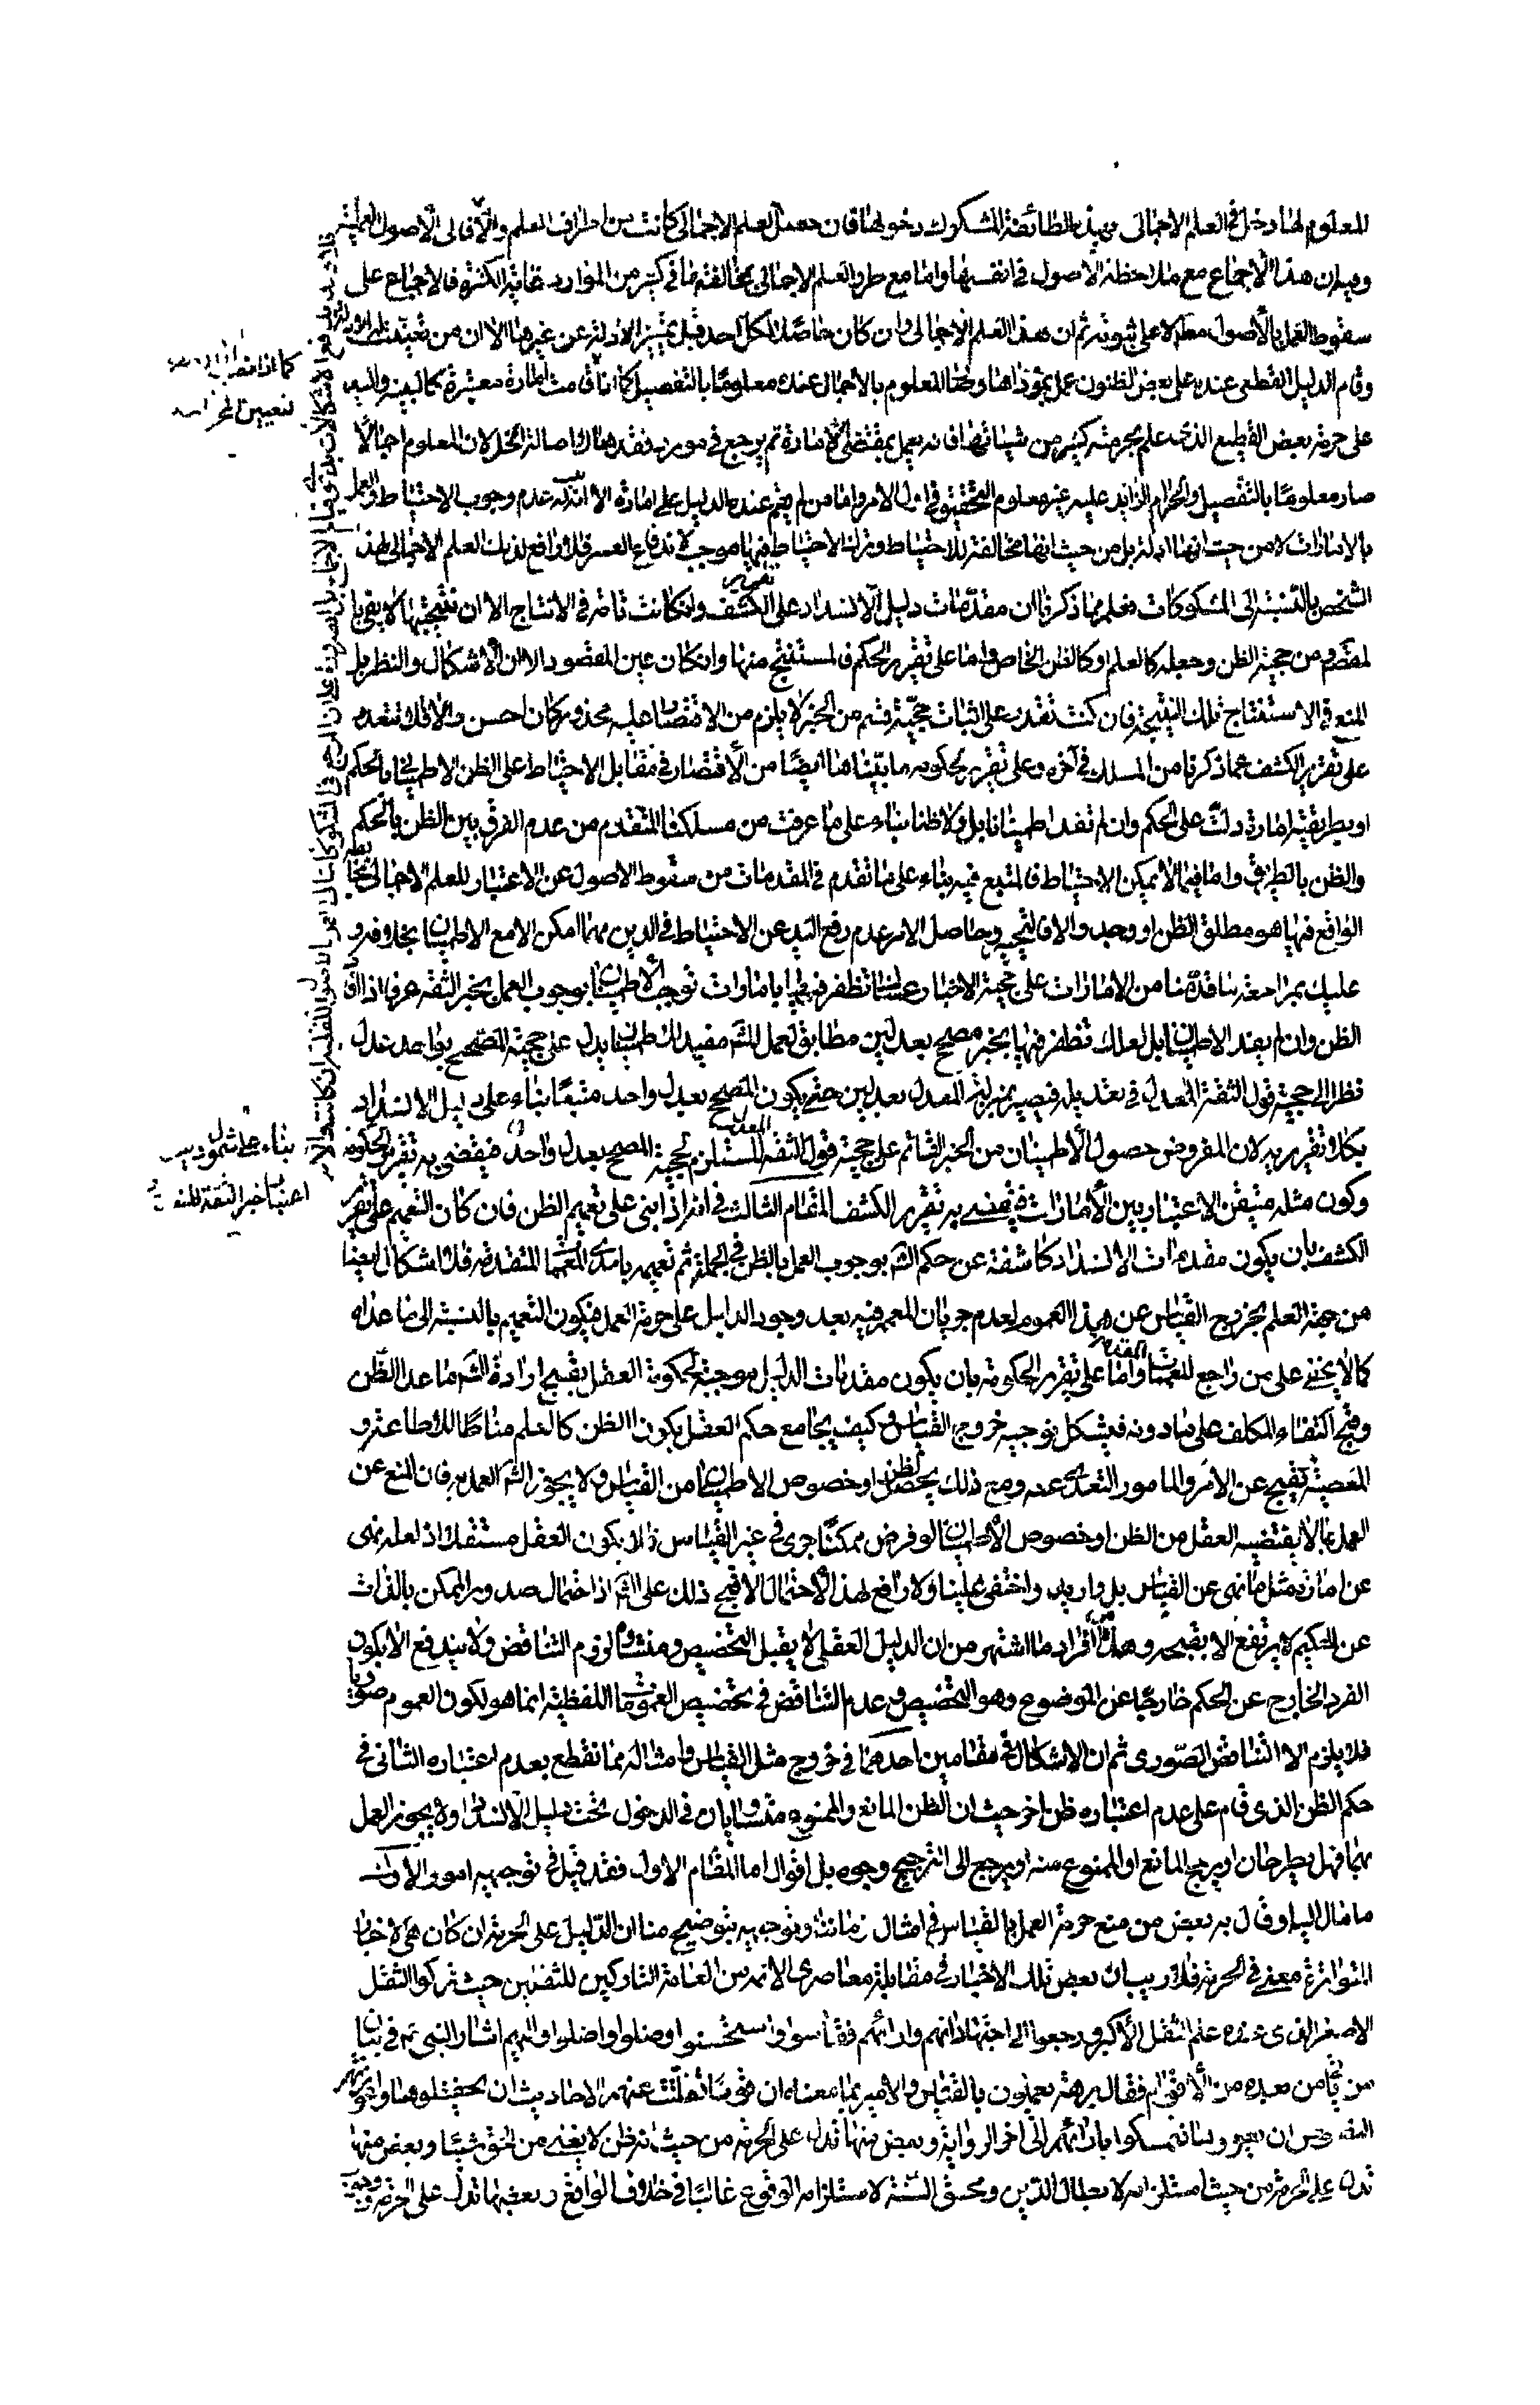 المعلوم لها دخل في العلم الاجمالى بهذه الطائفة المشكوك دخولها فان حصل العلم الاجمالى كانت من اطراف العلم والا فالى الاصول العملية
وميزان هذا الاجماع مع ملاحظة الاصول في انفسها واما مع طرو العلم الاجمالى بمخالفتها في كثير من الموارد غاية الكثرة فالاجماع على
سقوط العمل بالاصول مطلقا لا على ثبوته ثم ان هذا العلم الاجمالى وان كان حاصلا لكل احد قبل تمييز الادلة عن غيرها الا ان من تعينت له الادلة
وقام الدليل القطعى عنده على بعض الظنون عمل بمؤداها وصار المعلوم بالاجمال عنده معلوما بالتفصيل كما اذا قامت امارة معتبرة كالبينة واليد
على حرمة بعض القطيع الذى علم بحرمة كثير من شياتها فانه يعمل بمقتضى الامارة ثم يرجع في مورد فقدها الى اصالة الحل لان المعلوم اجمالا
صار معلوما بالتفصيل والحرام الزايد عليه غير معلوم التحقق في اول الامر واما من لم يقم عنده الدليل على امارة الا انه ثبت له عدم وجوب الاحتياط والعمل
بالامارات لا من حيث انها ادلة بل من حيث انها مخالفة للاحتياط وترك الاحتياط فيها موجب لاندفاع العسر فلا رافع لذلك العلم الاجمالى لهذا
الشخص بالنسبة الى المشكوكات فعلم مما ذكرنا ان مقدمات دليل الانسداد على تقرير الكشف وان كانت تامة في الانتاج الا ان نتيجتها لا يفى با
لمقصود من حجية الظن وجعله كالعلم او كالظن الخاص واما على تقرير الحكومة فالمستنتج منها وان كان عين المقصود الا ان الاشكال والنظر بل
المنع في الاستنتاج تلك النتيجة فان كنت تقدر على اثبات حجية قسم من الخبر لا يلزم من الاقتصار عليه محذور كان احسن والا فلا تتعد
على تقرير الكشف عما ذكرنا من المسلك في آخره وعلى تقرير الحكومة ما بينا هنا ايضا من الاقتصار في مقابل الاحتياط على الظن الاطمينانى بالحكم
او بطريقية امارة دلت على الحكم وان لم تفد اطمينانا بل ولا ظنا بناء على ما عرفت من مسلكنا المتقدم من عدم الفرق بين الظن بالحكم
والظن بالطريق واما فيما لا يمكن الاحتياط فالمتبع فيه بناء على ما تقدم في المقدمات من سقوط الاصول عن الاعتبار للعلم الاجمالى بمخالفة
الواقع فيها هو مطلق الظن ان وجد والا فالتخيير وحاصل الامر عدم رفع اليد عن الاحتياط في الدين مهما امكن الا مع الاطمينان بخلافه و
عليك بمراجعة ما قدمنا من الامارات على حجية الاخبار عساك تظفر فيها بامارات توجب الاطمينان بوجوب العمل بخبر الثقة عرفا اذا افاد
الظن وان لم يفد الاطمينان بل لعلك تظفر فيها بخبر مصحح بعدلين مطابق لعمل المشهور مفيد للاطمينان يدل على حجية المصحح بواحد عدل
نظرا الى حجية قول الثقة المعدل في تعديله فيصير بمنزلة المعدل بعدلين حتى يكون المصحح بعدل واحد متبعا بناء على دليل الانسداد
بكلا تقريريه لان المفروض حصول الاطمينان من الخبر القائم على حجية قول الثقة المعدل المستلزم لحجية المصحح بعدل واحد فيقضى به تقرير الحكومة
وكون مثله متيقن الاعتبار بين الامارات فيقضى به تقرير الكشف المقام الثالث في انه اذا بنى على تعميم الظن فان كان التعميم على تقرير
الكشف بان يكون مقدمات الانسداد كاشفة عن حكم الشارع بوجوب العمل بالظن في الجملة ثم تعميمه باحدى المعممات المتقدمة فلا اشكال ايضا
من جهة العلم بخروج القياس عن هذا العموم لعدم جريان المعمم فيه بعد وجود الدليل على حرمة العمل فيكون التعميم بالنسبة الى ما عداه
كما لا يخفى على من راجع المعممات المتقدمة واما على تقرير الحكومة بان يكون مقدمات الدليل موجبة لحكومة العقل بقبح ارادة الشارع ما عدا الظن
وقبح اكتفاء المكلف على ما دونه فيشكل توجيه خروج القياس وكيف يجامع حكم العقل بكون الظن كالعلم مناطا للاطاعة و
المعصية ويقبح عن الامر والمامور التعدى عنه ومع ذلك يحصل الظن او خصوص الاطمينان من القياس ولا يجوز الشارع العمل به فان المنع عن
العمل بما يقتضيه العقل من الظن او خصوص الاطمينان لو فرض ممكنا جرى في غير القياس فلا يكون العقل مستقلا اذ لعله نهى
عن امارة مثل ما نهى عن القياس بل وازيد واختفى علينا ولا رافع لهذا الاحتمال الا قبح ذلك على الشارع اذ احتمال صدور الممكن بالذات
عن الحكيم لا يرتفع الا بقبحه وهذا من افراد ما اشتهر من ان الدليل العقلى لا يقبل التخصيص ومنشاؤه لزوم التناقض ولا يندفع الا بكون
الفرد الخارج عن الحكم خارجا عن الموضوع وهو التخصص وعدم التناقض في تخصيص العمومات اللفظية انما هو لكون العموم صوريا
فلا يلزم الا التناقض الصورى ثم ان الاشكال في مقامين احدهما في خروج مثل القياس وامثاله مما نقطع بعدم اعتباره الثانى في
حكم الظن الذى قام على عدم اعتباره ظن اخر حيث ان الظن المانع والممنوع متساويان في الدخول تحت دليل الانسداد ولا يجوز العمل
بهما فهل يطرحان او يرجح المانع او الممنوع منه او يرجع الى الترجيح وجوه بل اقوال اما المقام الاول فقد قيل في توجيهه امور الاول
ما مال اليه او قال به بعض من منع حرمة العمل بالقياس في امثال زماننا وتوجيهه بتوضيح منا ان الدليل على الحرمة ان كان هى الاخبار
المتواترة معنى في الحرمة فلا ريب ان بعض تلك الاخبار في مقابلة معاصرى الائمة من العامة التاركين للثقلين حيث تركوا الثقل
الاصغر الذى عنده علم الثقل الاكبر ورجعوا الى اجتهاداتهم وارائهم فقاسوا واستحسنوا وضلوا واضلوا واليهم اشار النبى في بيان
من ياتى من بعده من الاقوام فقال برهة يعملون بالقياس والامير بما معناه ان قوما تفلتت عنهم الاحاديث ان يحفظوها واعوزتهم
النصوص ان يعوها فتمسكوا بارائهم الى اخر الرواية وبعض منها تدل على الحرمة من حيث انه ظن لا يغنى من الحق شيئا وبعض منها
تدل على الحرمة من حيث استلزامه لابطال الدين ومحق السنة لاستلزامه الوقوع غالبا في خلاف الواقع وبعضها تدل على الحرمة و
كما اذا
تعيين
بناء على شمول دليل
اعتبار خبر الثقة